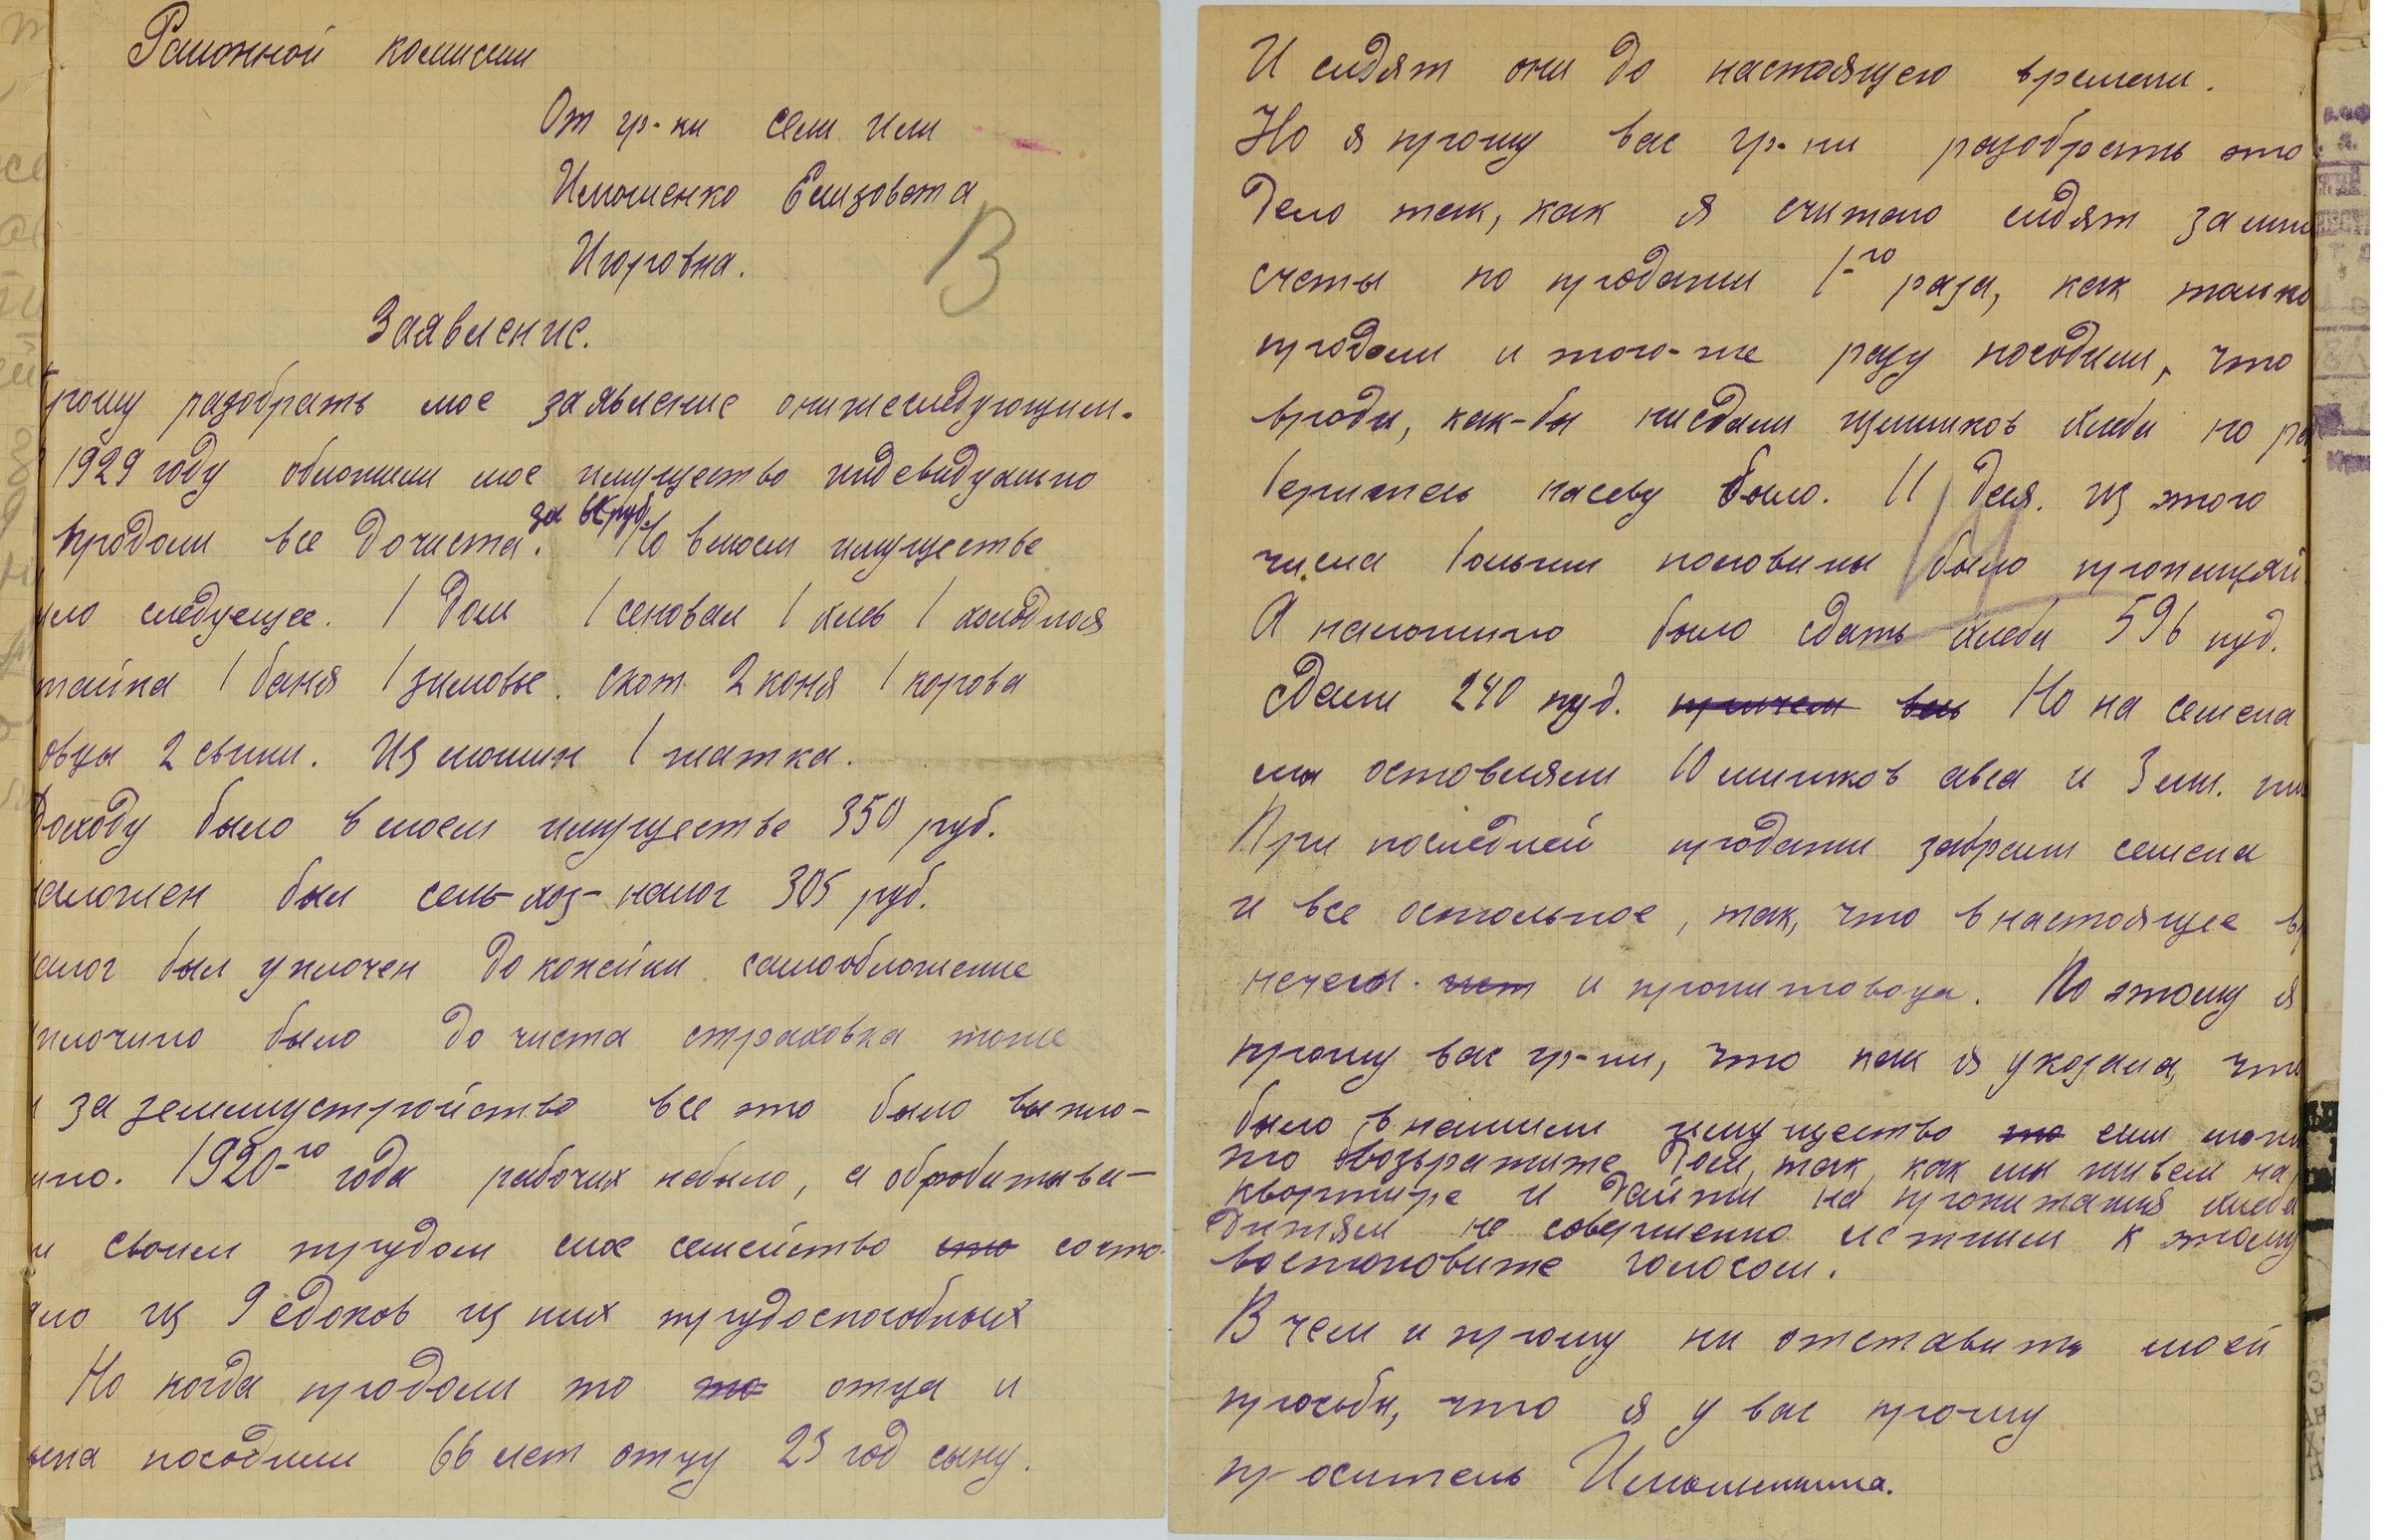 Районной комисии
От гр-ки села Или
Имошенко Елизовета
Игоровна.
В
Заявление.
Прошу разобрать мое заявление онижеследующим.
1929 году обложили мое имущество индевидуально
продали все дочиста. за 68 руб. Но вмоем имуществе
было следующее. 1 дом 1 сеновал 1 хлев 1 холодная
стайка 1 баня 1 зимовье. скот 2 коня 1 корова
овцы 2 свини. Из машин 1 жатка.
Доходу было в моем имуществе 350 руб.
наложен был сель-хоз-налог 305 руб.
налог был уплочен до копейки самообложение
уплочино было до чиста страховка тоже
и за землиустройство все это было выпло-
чино. 1920-го года рабочих небыло, а обробатыва-
ли своим трудом мое семейство состо-
яло из 9 едоков из них трудоспособных
Но когда продали то отца и
сына посадили 66 лет отцу 23 год сыну.
И сидят они до настоящего времени.
Но я прошу вас гр-ни разобрать это
дело так, как я считаю сидят за
счеты по продажи 1-го раза, как только
продали и того-же разу посадили, что
вроди, как-бы нисдали излишков хлеба но
посеву было. 11 дес. из этого
числа больши половины было
А наложино было сдать хлеба 596 пуд.
Сдали 240 пуд. Но на семена
мы оставляли 10 мишков авса и 3 миш.
При последней продажи забрали семена
и все остольное, так, что в настоящее
нечем и пропитоваца. По этому я
прошу вас гр-ни, что как я указала, что
было в нашим имущество еси можно
то возвратите дом, так как мы живем на
квортире и дайти на пропитания хлеба
дитям не совершенно летним к этому
востоновите голосом.
В чем и прошу ни отставить моей
прозьбы, что я у вас прошу
проситель Имошинина.